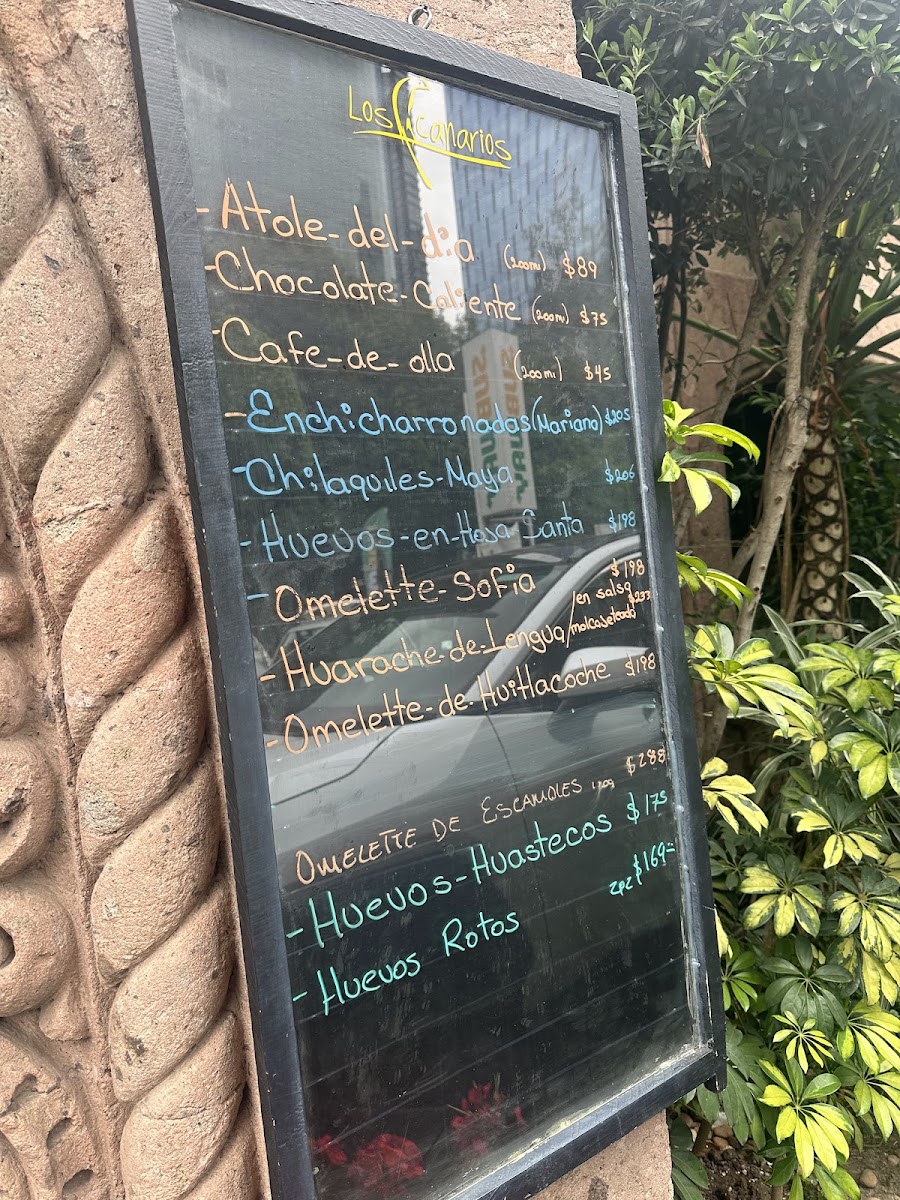 Los Canarios
- Atole-del-dia (200ml) $89
- Chocolate-Caliente (200ml) $75
- Cafe-de-olla (200ml) $45
- Enchicharronadas (Mariano) $205
- Chilaquiles-Maya $206
- Huevos-en-Hoja Santa $198
- Omelette-Sofia $198
- Huarache-de-Lengua /en salsa molcajeteada $233
- Omelette-de-Huitlacoche $198
OMELETTE DE ESCAMOLES $288
- Huevos-Huastecos $175
- Huevos Rotos 2pz $169